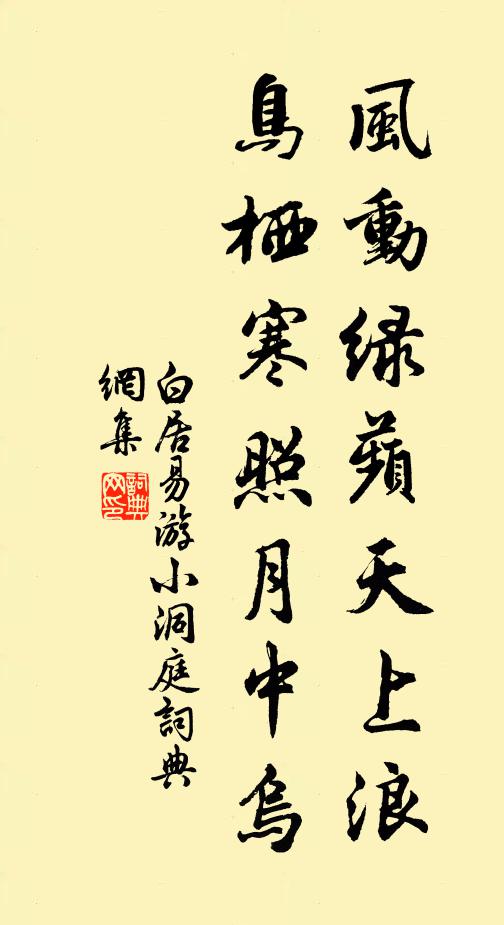 風動綠蘋天上浪
鳥栖寒照月中烏
白居易游小洞庭詞典
網集
詞典
网印